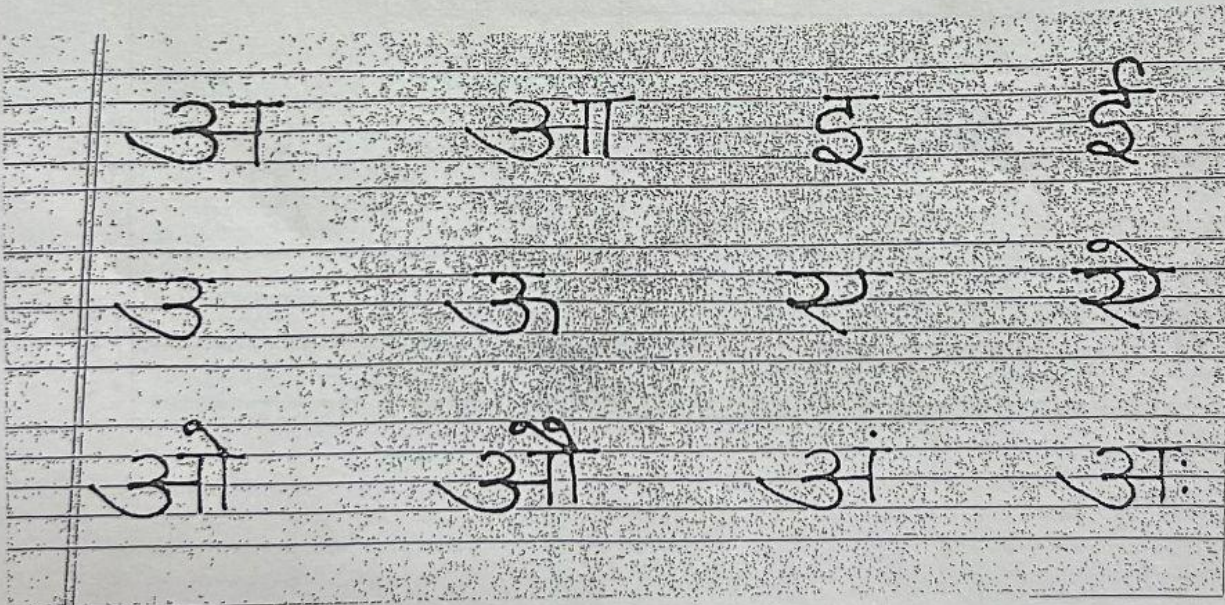 अ आ इ ई
उ ऊ ए ऐ
ओ औ अं अः